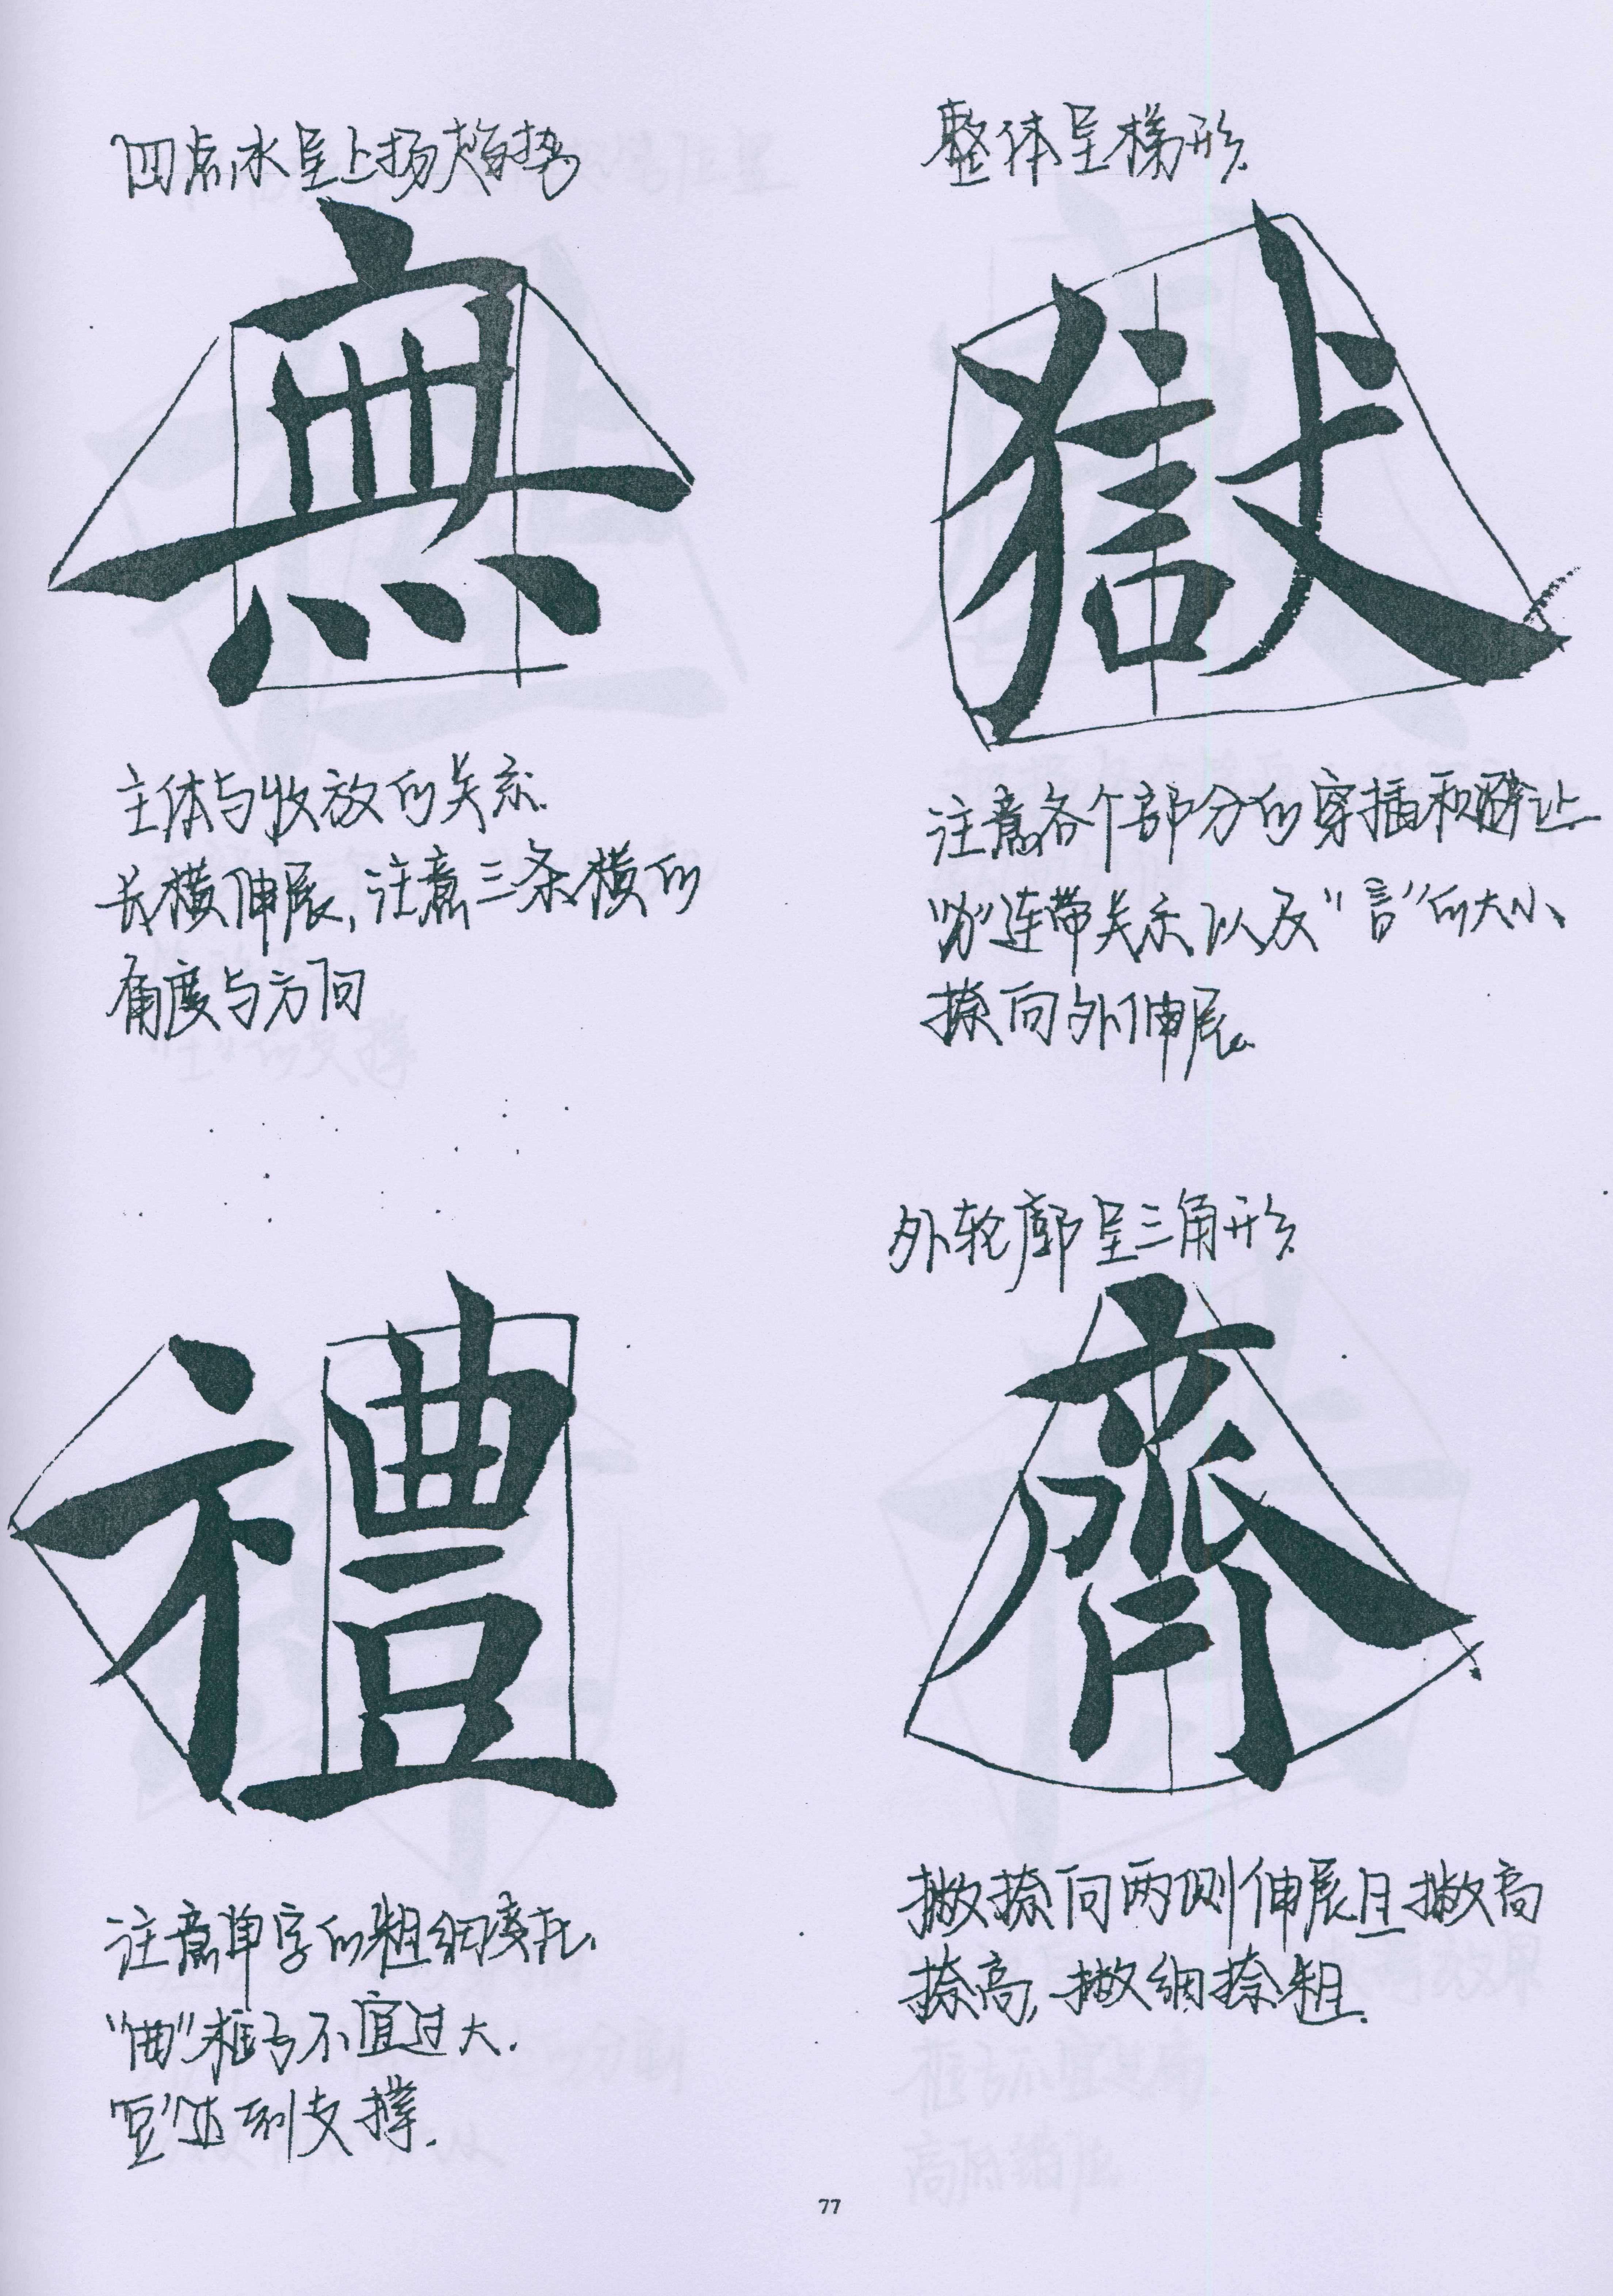 四点水呈上扬趋势
無
主体与收放的关系.
长横伸展,注意三条横的
角度与方向
整体呈梯形.
獄
注意各个部分的穿插和避让
连带关系以及"言"的大小、
捺向外伸展。
禮
注意单字的粗细
"曲"框子不宜过大.
"豆"起到支撑.
外轮廓呈三角形.
齊
撇捺向两侧伸展且撇高
捺高,撇细捺粗.
77